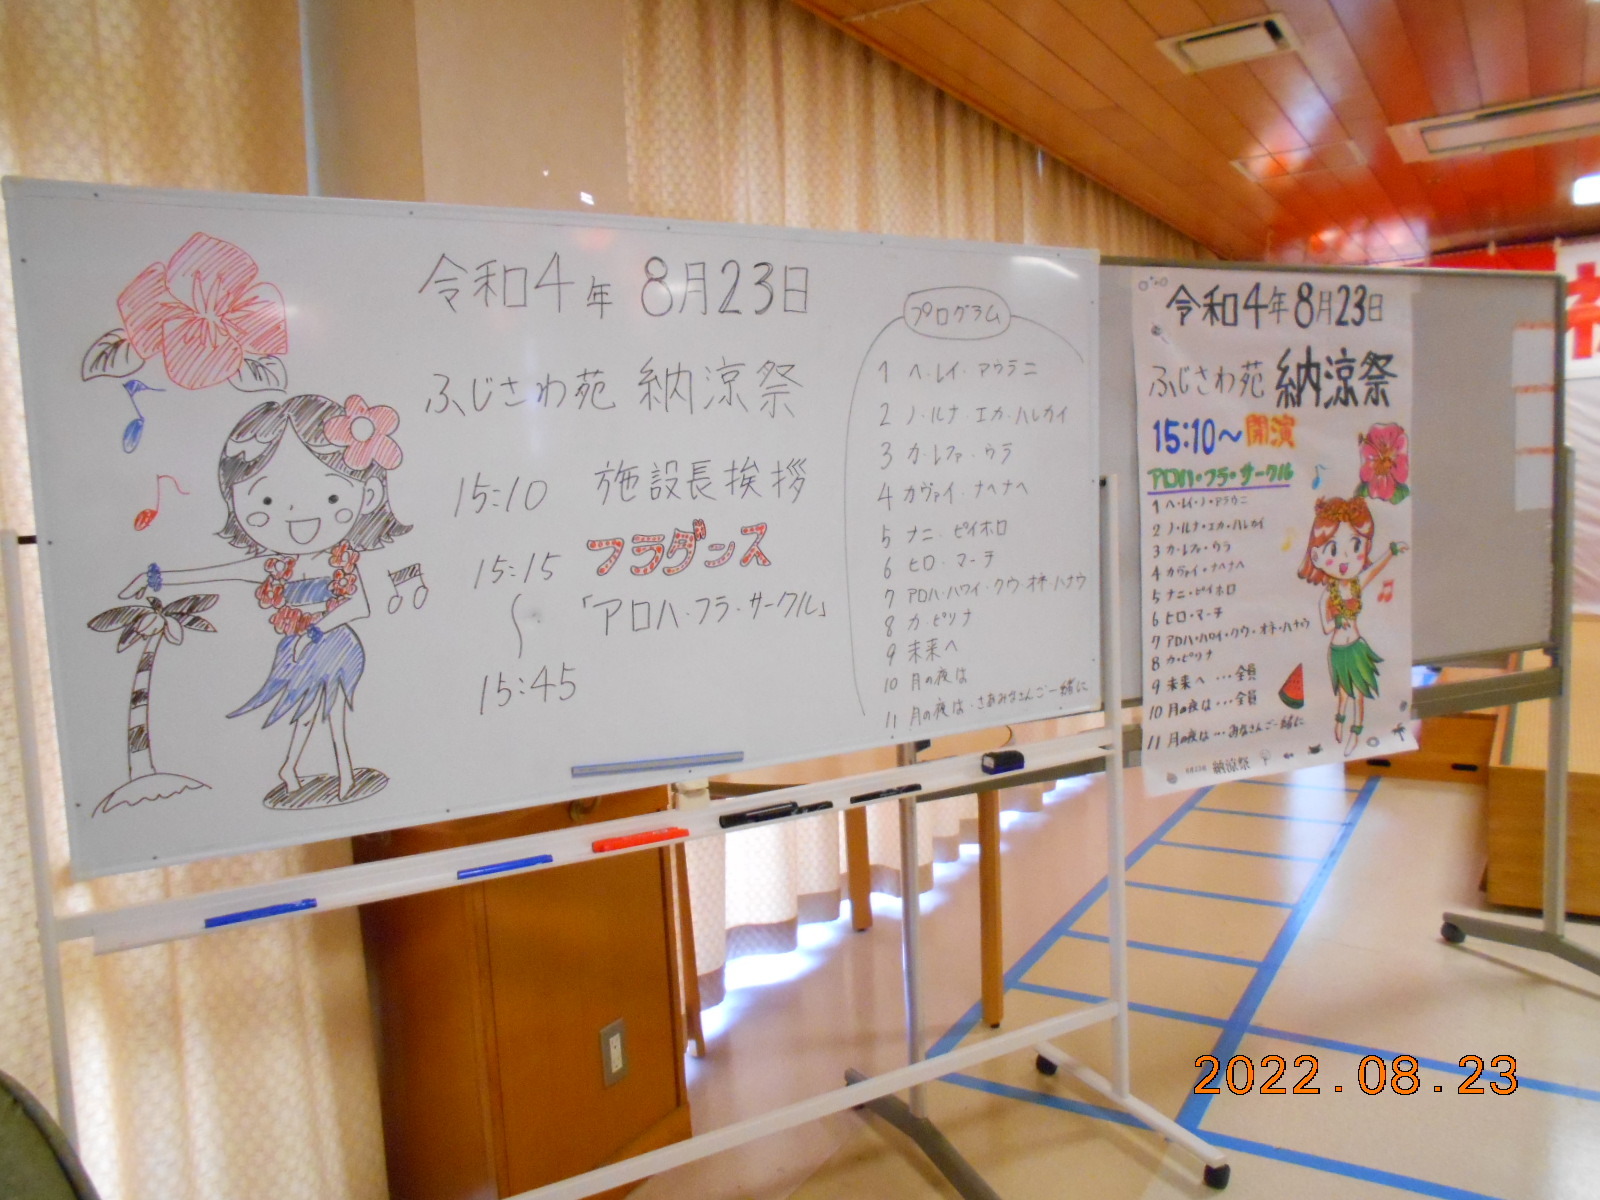 令和4年 8月23日
ふじさわ苑 納涼祭
15:10 施設長挨拶
15:15 フラダンス
「アロハ・フラ・サークル」
15:45
プログラム
1 ヘ・レイ・アウラニ
2 ノ・ルナ エカ・ハレカイ
3 カ・レファ・ウラ
4 カヴァイ・ナヘナヘ
5 ナニ・ピイホロ
6 ヒロ・マーチ
7 アロハ・ハワイ・クウ・オネ・ハナウ
8 カ・ピリナ
9 未来へ
10 月の夜は
11 月の夜は・さあみなさんご一緒に
令和4年8月23日
ふじさわ苑 納涼祭
15:10〜開演
アロハ・フラ・サークル
1 ヘ・レイ・ノ・アラウニ
2 ノ・ルナ・エカ・ハレカイ
3 カ・レファ・ウラ
4 カヴァイ・ナヘナヘ
5 ナニ・ピイホロ
6 ヒロ・マーチ
7 アロハ・ハロイ・クウ・オネ・ハナウ
8 カ・ピリナ
9 未来へ …全員
10 月の夜は…全員
11 月の夜は…みなさんご一緒に
納涼祭
2022.08.23